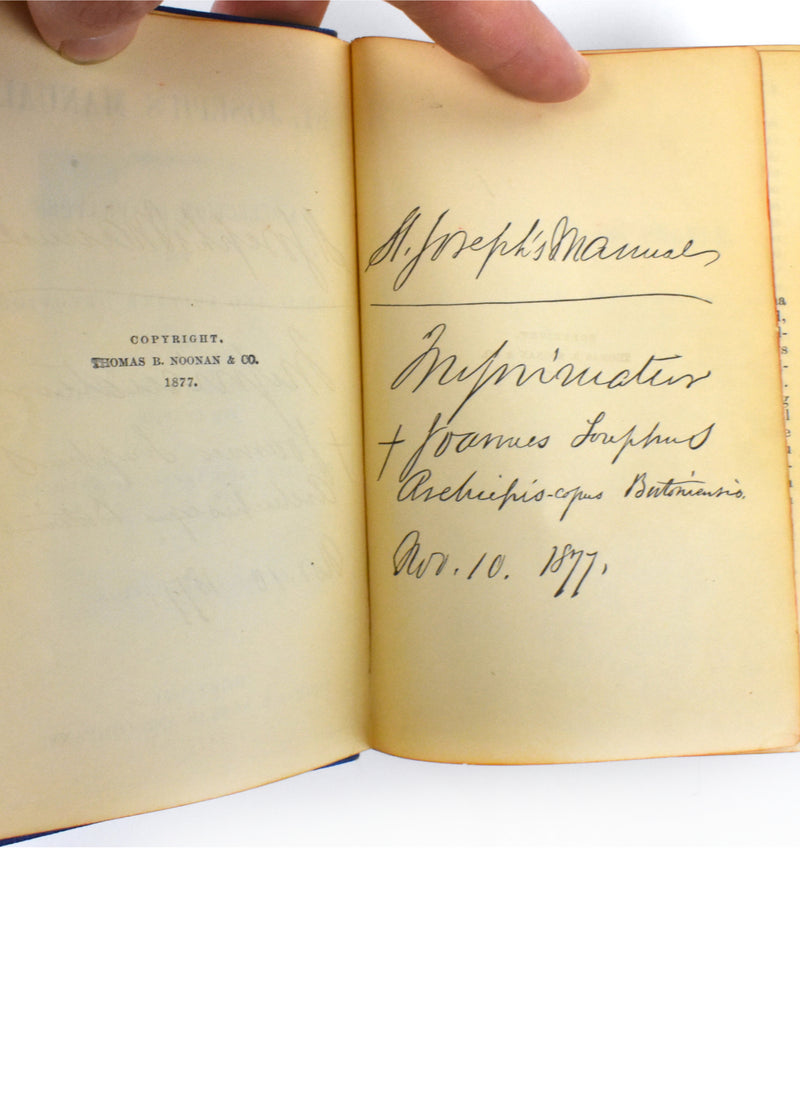 COPYRIGHT.
THOMAS B. NOONAN & CO.
1877.
St. Joseph's Manual
Imprimatur
+ Joannes Josephus
Archiepis-copus Bostoniensis.
Nov. 10. 1877.